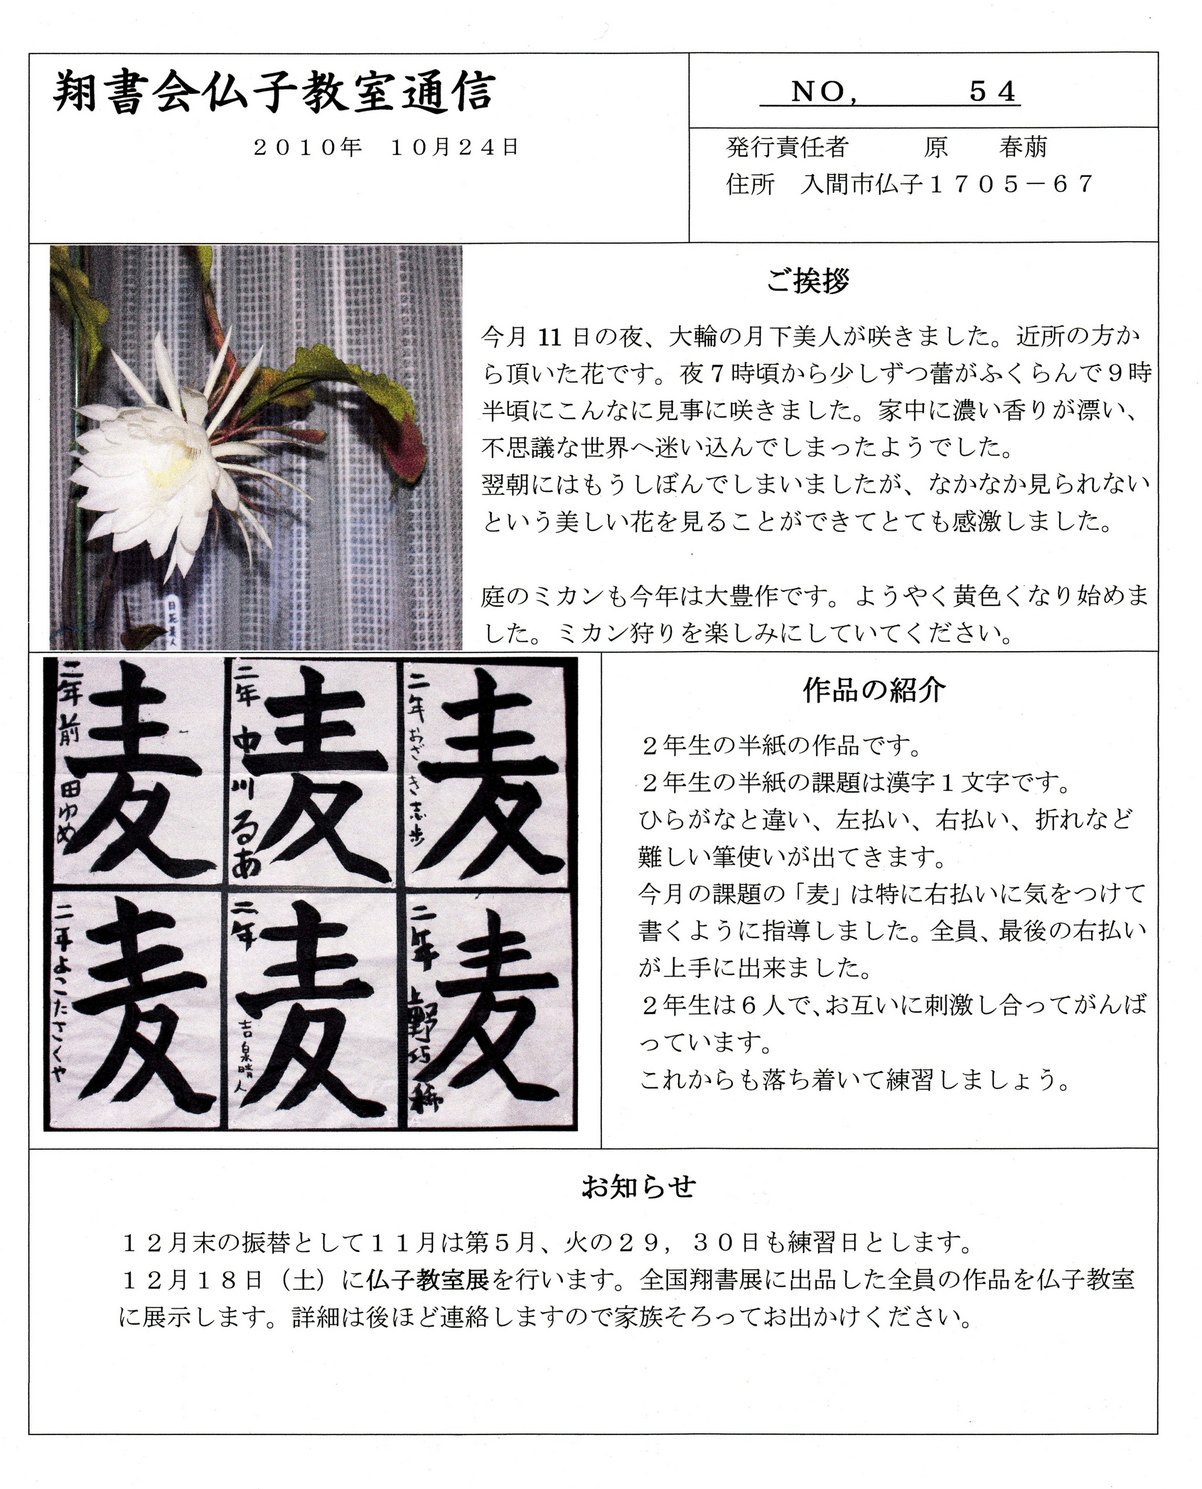 翔書会仏子教室通信
２０１０年　１０月２４日
NO,　　　５４
発行責任者　　　原　　春萠
住所　入間市仏子１７０５－６７
ご挨拶
今月 11 日の夜、大輪の月下美人が咲きました。近所の方か
ら頂いた花です。夜７時頃から少しずつ蕾がふくらんで９時
半頃にこんなに見事に咲きました。家中に濃い香りが漂い、
不思議な世界へ迷い込んでしまったようでした。
翌朝にはもうしぼんでしまいましたが、なかなか見られない
という美しい花を見ることができてとても感激しました。
庭のミカンも今年は大豊作です。ようやく黄色くなり始めま
した。ミカン狩りを楽しみにしていてください。
麦
二年 前田ゆめ
麦
二年 中川るあ
麦
二年 おざき志歩
麦
二年 よこたさくや
麦
二年 吉泉晴人
麦
二年 上野巧稀
作品の紹介
２年生の半紙の作品です。
２年生の半紙の課題は漢字１文字です。
ひらがなと違い、左払い、右払い、折れなど
難しい筆使いが出てきます。
今月の課題の「麦」は特に右払いに気をつけて
書くように指導しました。全員、最後の右払い
が上手に出来ました。
２年生は６人で、お互いに刺激し合ってがんば
っています。
これからも落ち着いて練習しましょう。
お知らせ
１２月末の振替として１１月は第５月、火の２９，３０日も練習日とします。
１２月１８日（土）に仏子教室展を行います。全国翔書展に出品した全員の作品を仏子教室
に展示します。詳細は後ほど連絡しますので家族そろってお出かけください。